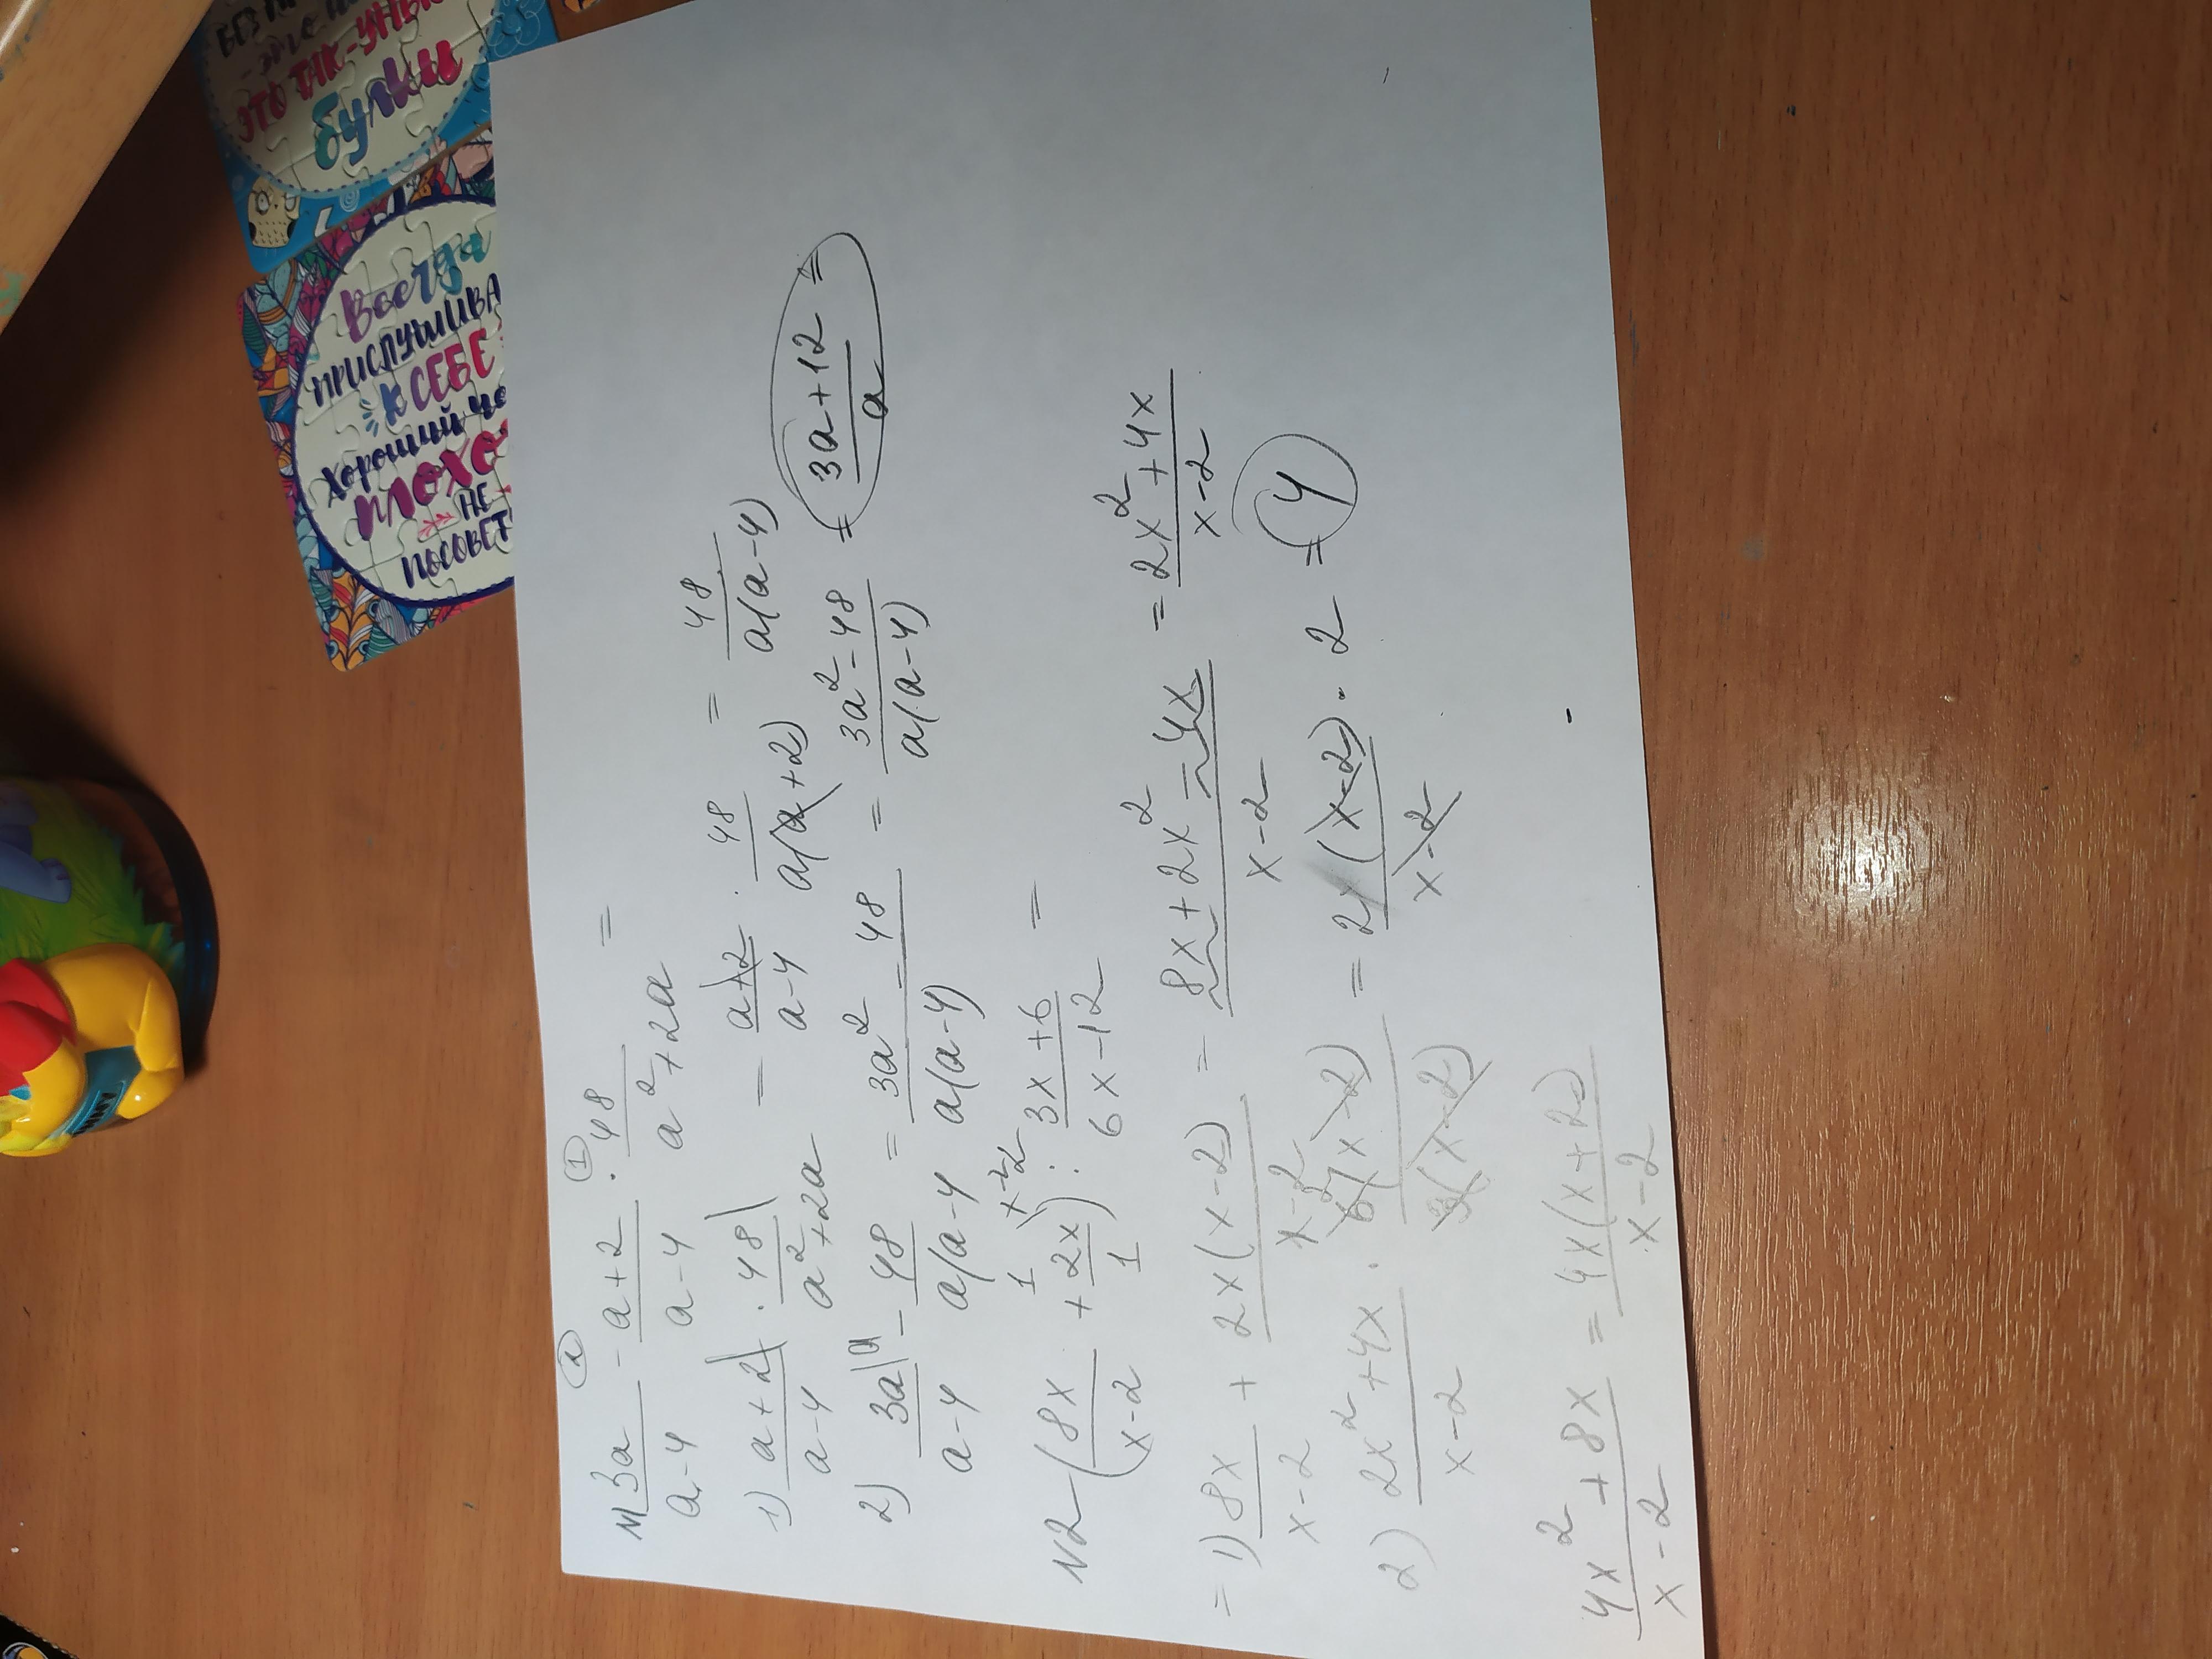 БЕЗ
ЭТО ТАК-УНЫ
булки
Всегда
ПРИСЛУШИВА
К СЕБЕ
Хороший че
плохо
НЕ
ПОСОВЕТ
2 1
N1 3a/(a-4) - (a+2)/(a-4) · 48/(a²+2a) =
1) (a+2)/(a-4) · 48/(a²+2a) = (a+2)/(a-4) · 48/(a(a+2)) = 48/(a(a-4))
2) 3a/(a-4) - 48/(a(a-4)) = (3a² - 48)/(a(a-4)) = (3a²-48)/(a(a-4)) = (3a+12)/a =
N2 (8x/(x-2) + 2x/1) : (3x+6)/(6x-12) =
= 1) 8x/(x-2) + 2x(x-2)/(x-2) = (8x+2x²-4x)/(x-2) = (2x²+4x)/(x-2)
2) (2x²+4x)/(x-2) · 6(x-2)/3(x-2) = 2(x-2)·2/(x-2) = 4
(4x²+8x)/(x-2) = 4x(x+2)/(x-2)